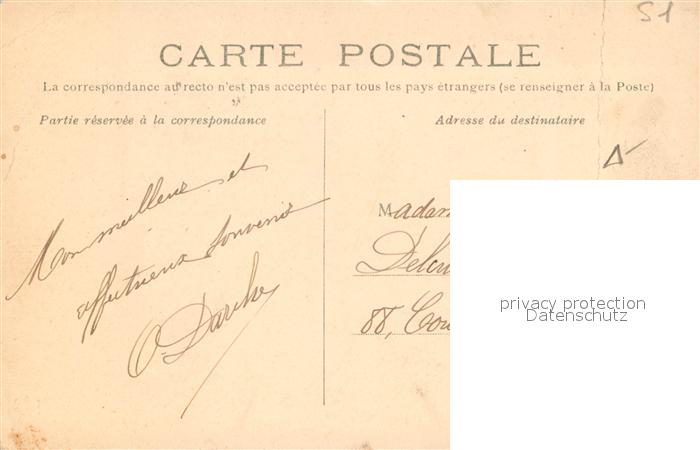 S1
CARTE POSTALE
La correspondance au recto n'est pas acceptée par tous les pays étrangers (se renseigner à la Poste)
Partie réservée à la correspondance
Adresse du destinataire
Mon meilleur et
affectueux souvenir
O. Darche
Madam
88, Cou
privacy protection
Datenschutz